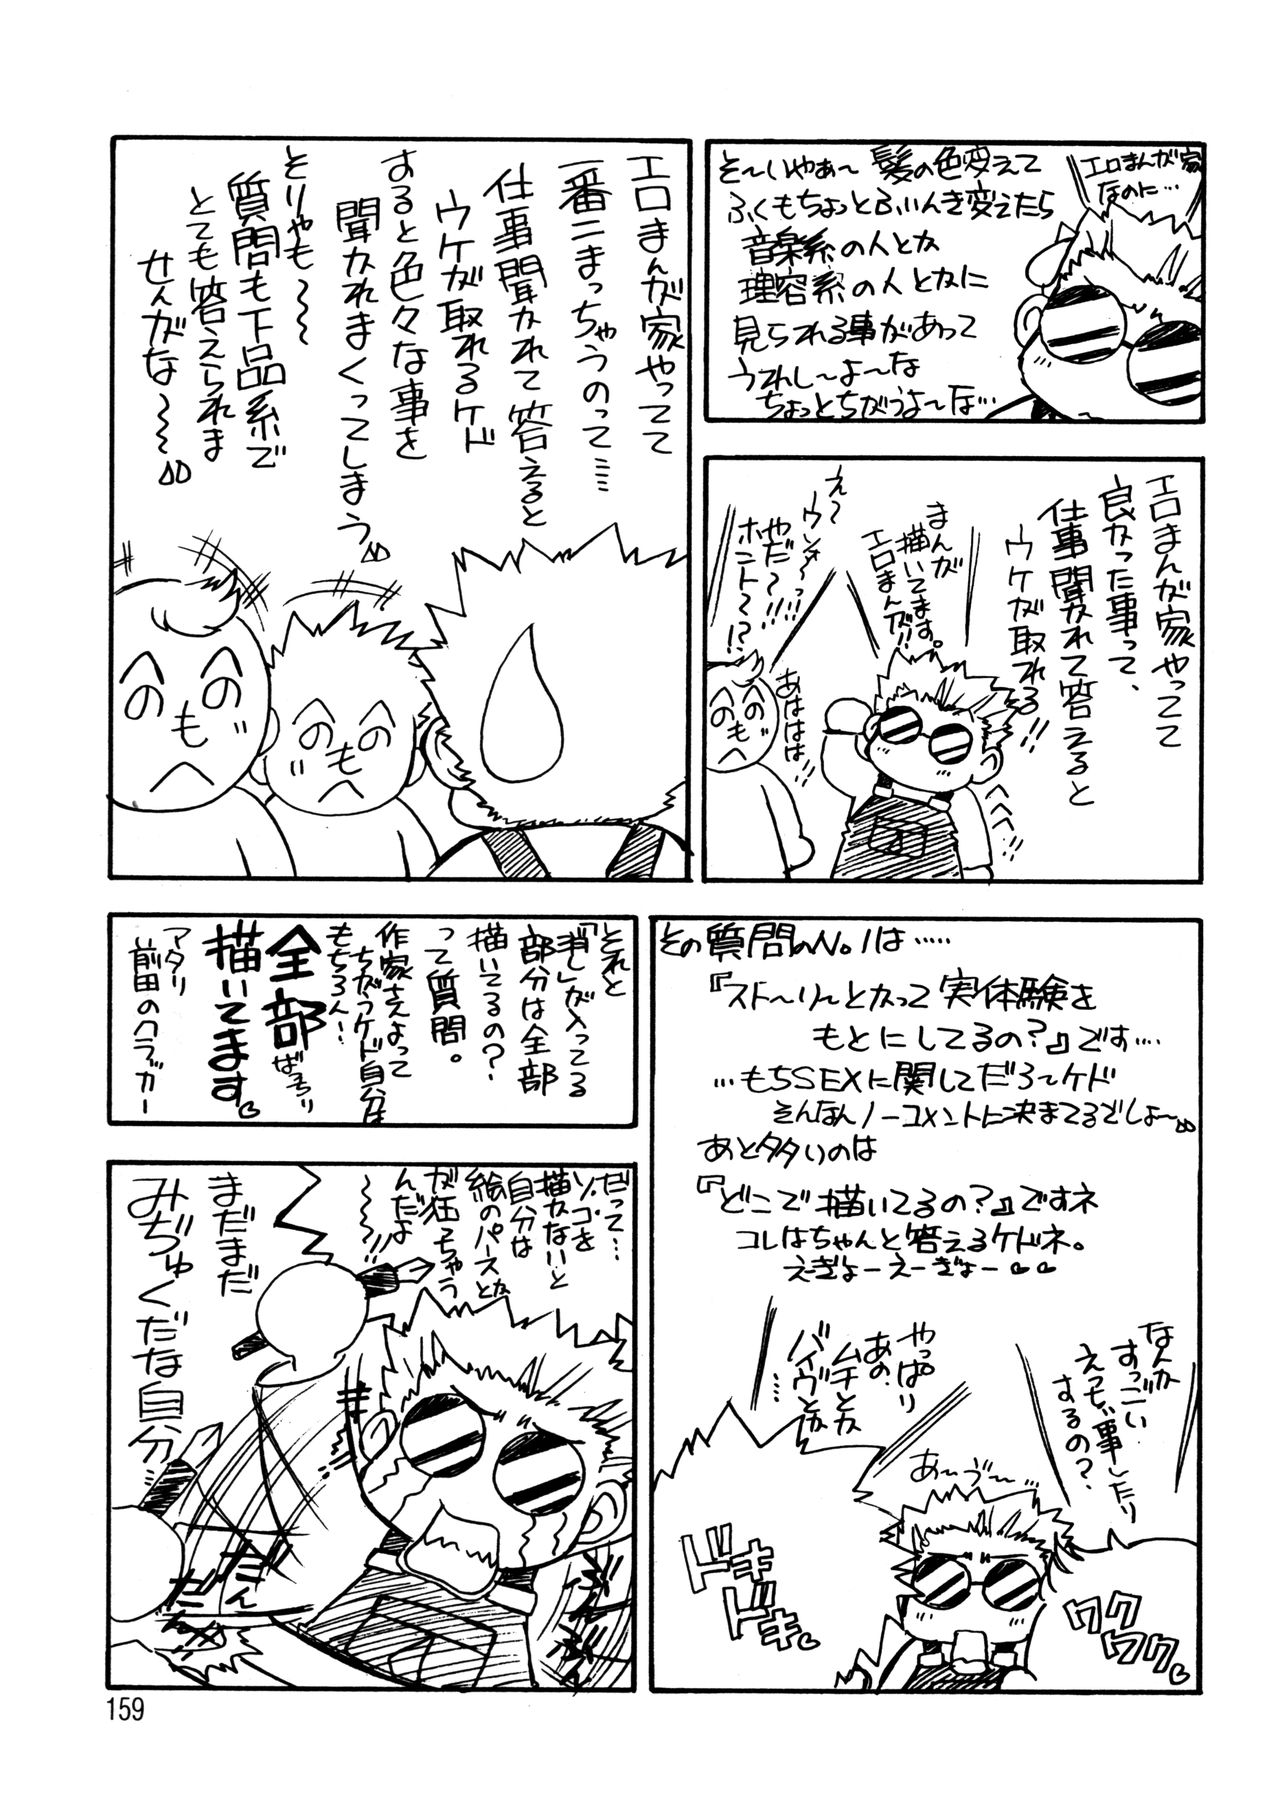 エロまんが家
なのに…
そ〜いやぁ〜髪の色変えて
ふくもちょっとふいんき変えたら
音楽系の人とか
理容系の人とかに
見られる事があって
うれし〜よ〜な
ちょっとちがうよ〜な…
エロまんが家やってて
良かった事って、
仕事聞かれて答えると
ウケが取れる!!
まんが
描いてます。
エロまんが!!
え〜
ウッソ〜っ!!
やだ〜!!!
ホント〜!?
あははは
へへへ
エロまんが家やってて
一番こまっちゃうのって……
仕事聞かれて答えると
ウケが取れるケド
あると色々な事を
聞かれまくってしまう
とりゃも〜〜
質問も下品系で
とても答えられま
せんがな〜〜〜
へのへのも
へのへのも
その質問のNo.1は……
『スト〜リ〜とかって実体験を
もとにしてるの?』です……
…もちSEXに関してだろ〜ケド
そんなんノーコメントに決まてるでしょ〜
あと多いのは
『どこで描いてるの?』ですネ
コレはちゃんと答えるケドネ。
えぎょーえーぎょー♡♡
なんか
すっごい
えっちぃ事したり
するの?
やっぱり
あの、
ムチとか
バイヴとか
…
あ〜う〜
ドキ
ドキ♡
ワク
ワク♡
それと
「消し」が入ってる
部分は全部
描いてるの?
って質問。
作家さんによって
ちがうケド自分は
もちろん!
全部ばっちり
描いてます♡
アタリ
前田のクラブガー
だって…
ソコを
描かないと
自分は
絵のパースとか
が狂っちゃう
んだよ
〜〜!!
まだまだ
みぢゅくだな自分…
だん
だん
159